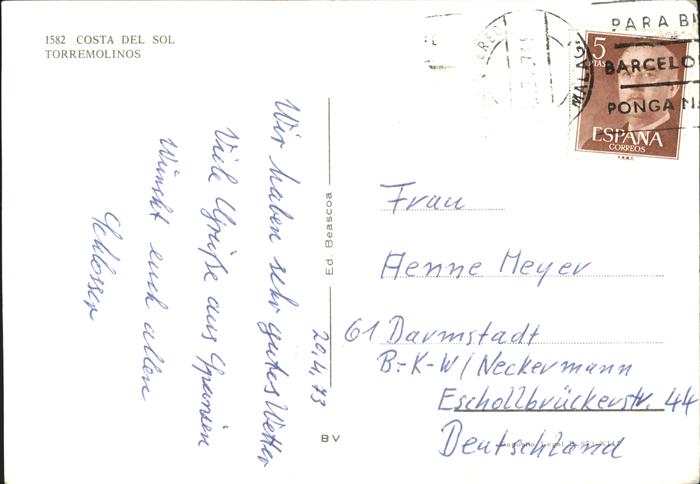 1582 COSTA DEL SOL
TORREMOLINOS
29.4.73
Wir haben sehr gutes Wetter
Viele Grüße aus Spanien
Wünscht euch allen
Schlosser
Ed. Beascoa
BV
PARA
BARCELO
PONGA
MALA
5
PTAS
ESPAÑA
CORREOS
F.N.M.T.
Frau
Henne Meyer
61 Darmstadt
B.-K-W/Neckermann
Eschollbrückerstr. 44
Deutschland